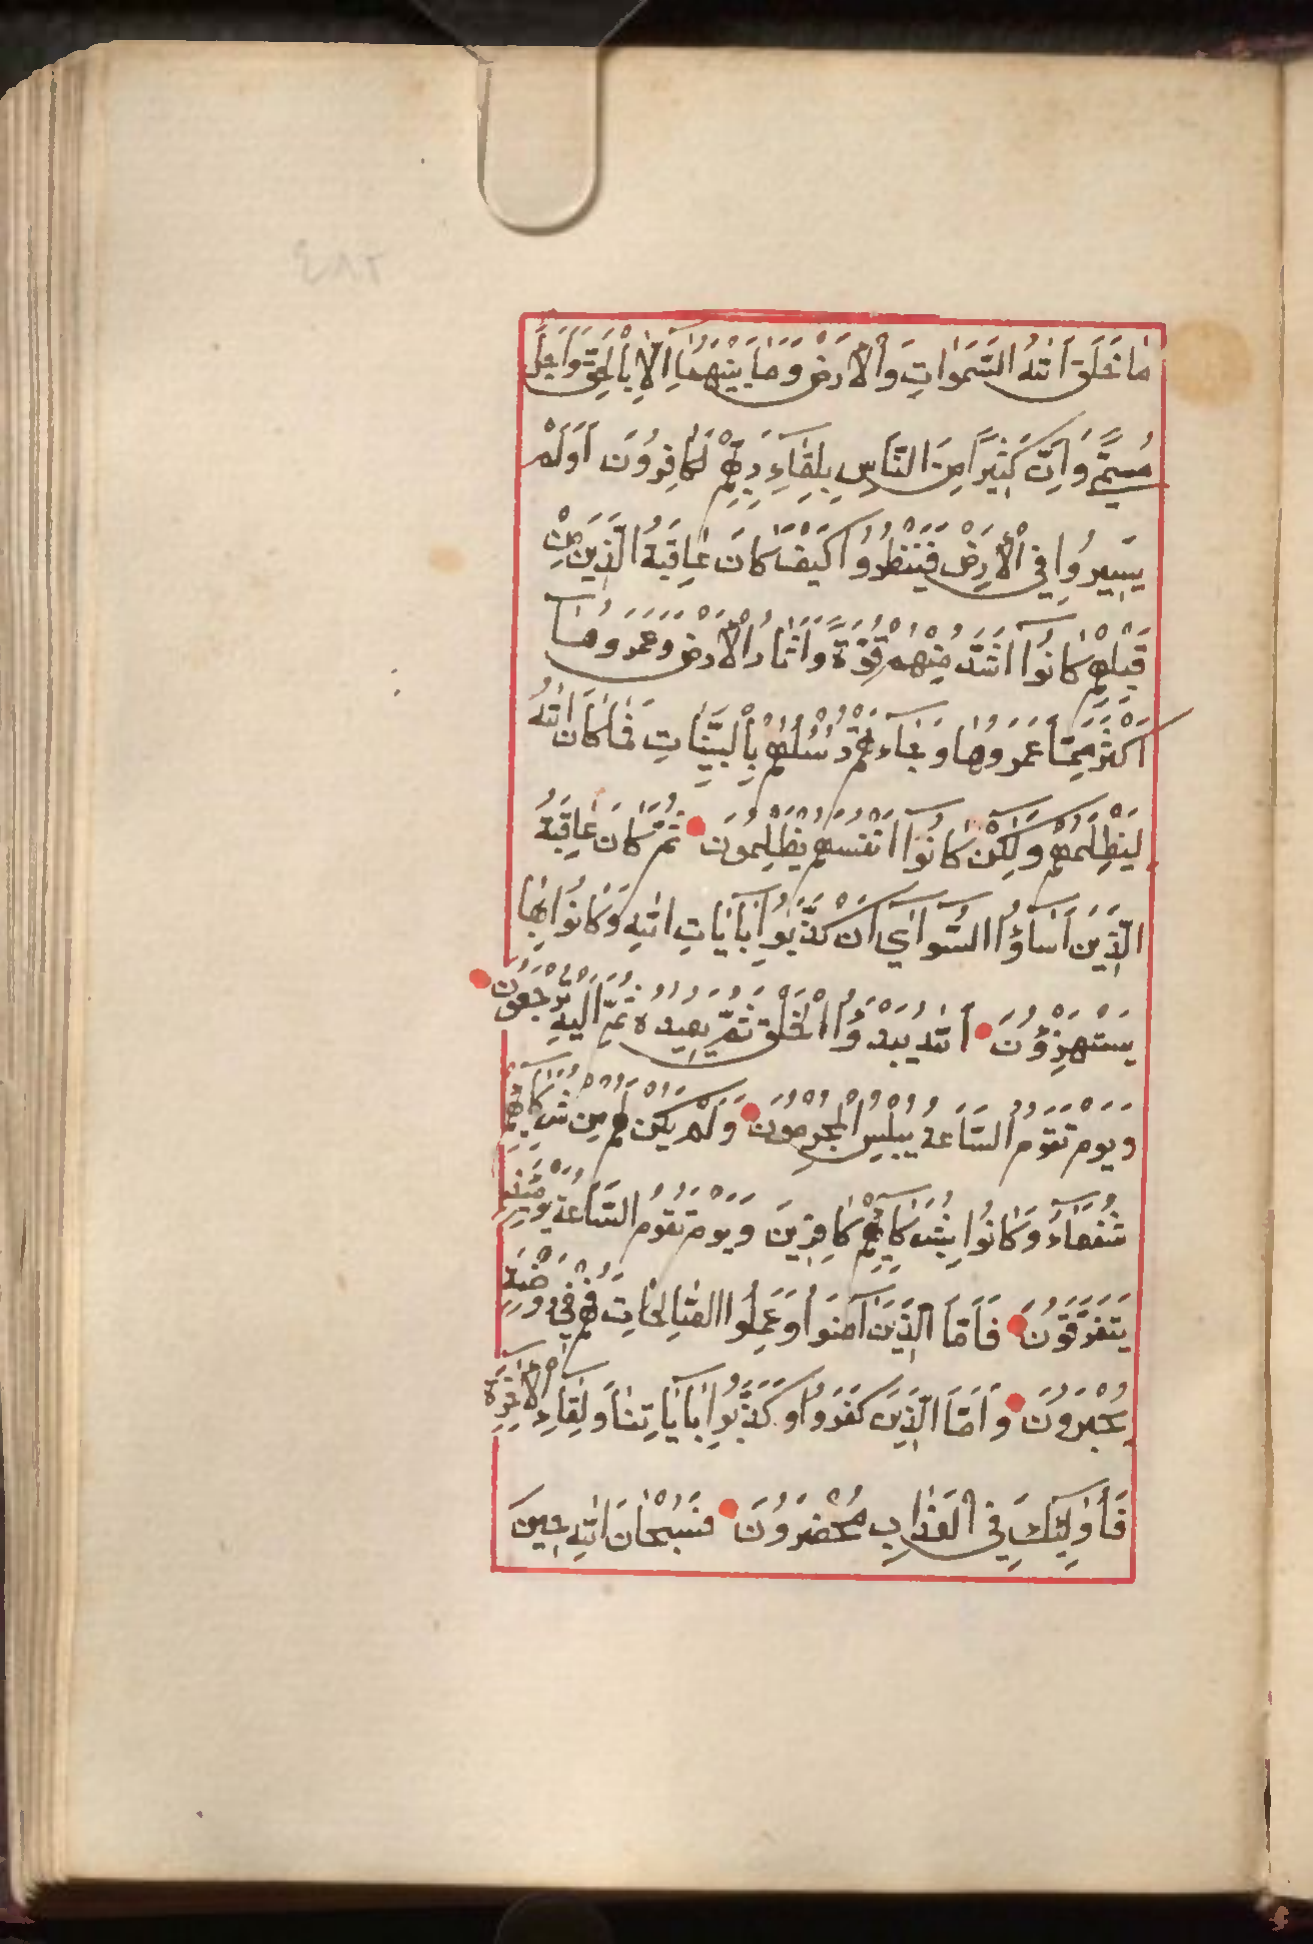 ٤٨٢
مَا خَلَقَ اَللّٰهُ السَّمَوَاتِ وَالْاَرْضَ وَمَا بَيْنَهُمَا اِلَّا بِالْحَقِّ وَاَجَلٍ
مُسَمًّى وَاِنَّ كَثِيرًا مِنَ النَّاسِ بِلِقَاءِ رَبِّهِمْ لَكَافِرُونَ اَوَلَمْ
يَسِيرُوا فِي الْاَرْضِ فَيَنْظُرُوا كَيْفَ كَانَ عَاقِبَةُ الَّذِينَ مِنْ
قَبْلِهِمْ كَانُوا اَشَدَّ مِنْهُمْ قُوَّةً وَاَثَارُ الْاَرْضَ وَعَمَرُوهَا
اَكْثَرَ مِمَّا عَمَرُوهَا وَجَاءَتْهُمْ رُسُلُهُمْ بِالْبَيِّنَاتِ فَمَا كَانَ اللّٰهُ
لِيَظْلِمَهُمْ وَلَكِنْ كَانُوا اَنْفُسَهُمْ يَظْلِمُونَ ثُمَّ كَانَ عَاقِبَةُ
الَّذِينَ اَسَاؤُا السُّواَي اَنْ كَذَّبُوا بِآيَاتِ اللّٰهِ وَكَانُوا بِهَا
يَسْتَهْزِؤُنَ اَللّٰهُ يَبْدَؤُا الْخَلْقَ ثُمَّ يُعِيدُهُ ثُمَّ اِلَيْهِ تُرْجَعُونَ
وَيَوْمَ تَقُومُ السَّاعَةُ يُبْلِسُ الْمُجْرِمُونَ وَلَمْ يَكُنْ لَهُمْ مِنْ شُرَكَائِهِمْ
شُفَعَاءُ وَكَانُوا بِشُرَكَائِهِمْ كَافِرِينَ وَيَوْمَ تَقُومُ السَّاعَةُ يَوْمَئِذٍ
يَتَفَرَّقُونَ فَاَمَّا الَّذِينَ آمَنُوا وَعَمِلُوا الصَّالِحَاتِ فَهُمْ فِي رَوْضَةٍ
يُحْبَرُونَ وَاَمَّا الَّذِينَ كَفَرُوا وَكَذَّبُوا بِآيَاتِنَا وَلِقَاءِ الْآخِرَةِ
فَاُولٰئِكَ فِي الْعَذَابِ مُحْضَرُونَ فَسُبْحَانَ اللّٰهِ حِينَ